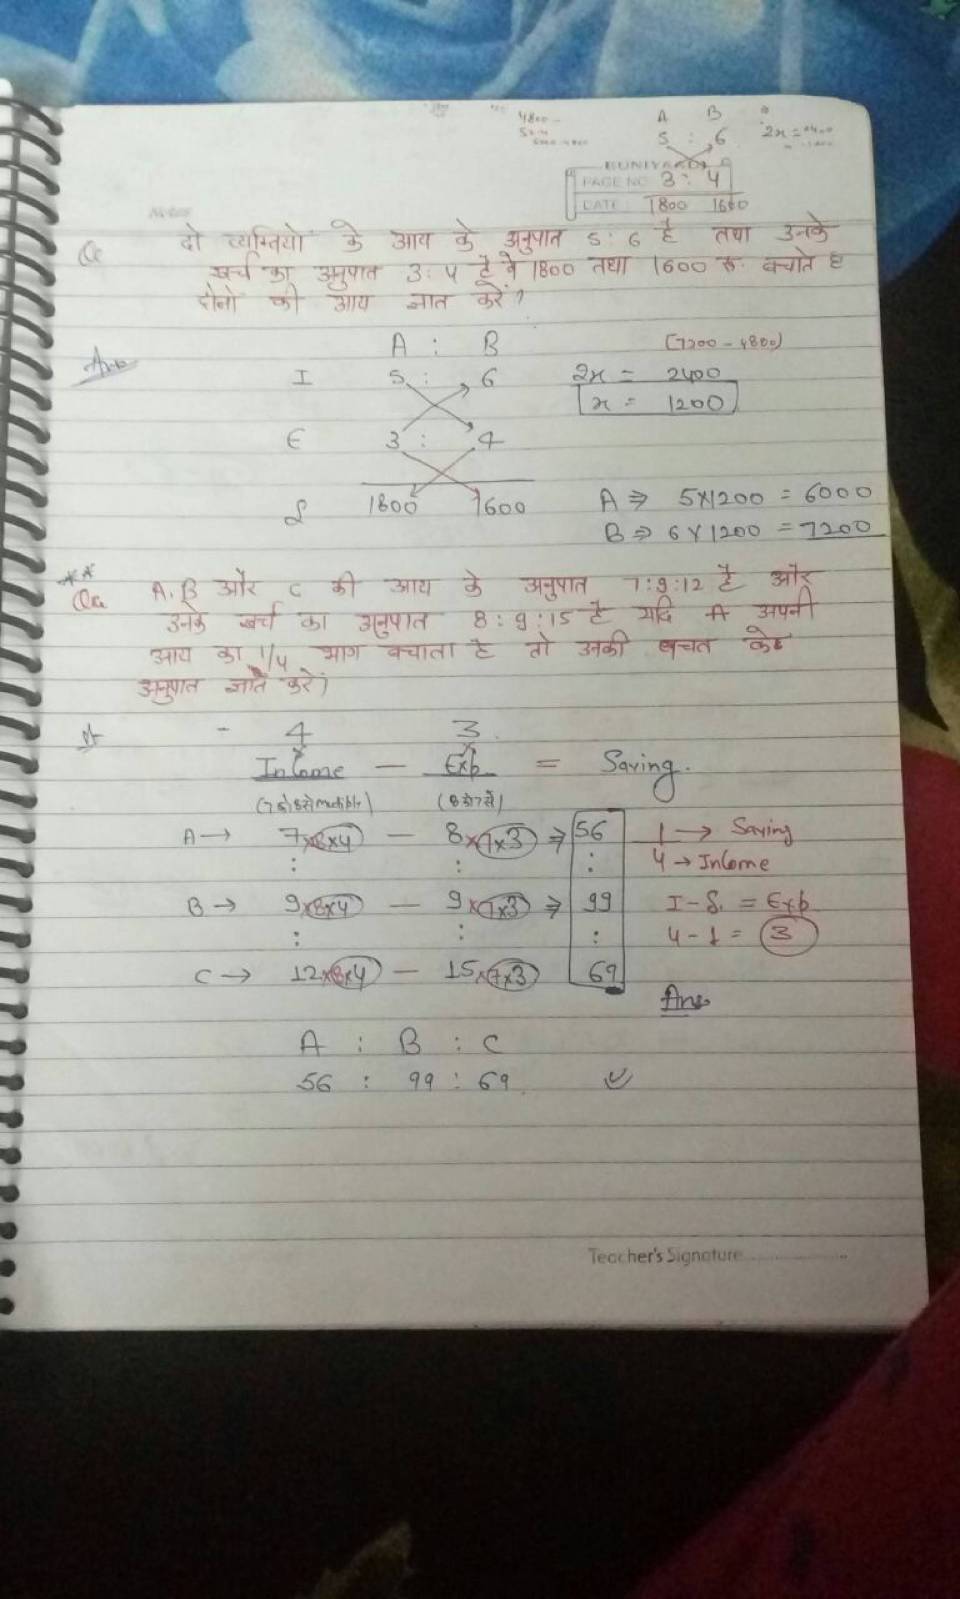 4800
A B
5 : 6 2x = 2400
BUNIYAAD
PAGE NO 3 : 4
DATE: 1800 1600
Q दो व्यक्तियों के आय के अनुपात 5:6 है तथा उनके
खर्च का अनुपात 3:4 है वे 1800 तथा 1600 रू. बचाते है
दोनो की आय ज्ञात करें?
Ans A : B (7200-4800)
I 5 : 6 2x = 2400
x = 1200
E 3 : 4
S 1800 1600 A ⇒ 5×1200 = 6000
B ⇒ 6×1200 = 7200
** A, B और C की आय के अनुपात 7:9:12 है और
Q. उनके खर्च का अनुपात 8:9:15 है यदि A अपनी
आय का 1/4 भाग बचाता है तो उनकी बचत के
अनुपात ज्ञात करें।
A - 4 3
Income - Exp = Saving.
(7 को 8 से multiply) (8 को 7 से)
A → 7×8×4 - 8×7×3 ⇒ 56 1 → Saving
: : : 4 → Income
B → 9×8×4 - 9×7×3 ⇒ 99 I - S. = Exp
: : : 4 - 1 = 3
C → 12×8×4 - 15×7×3 69
Ans
A : B : C
56 : 99 : 69
Teacher's Signature